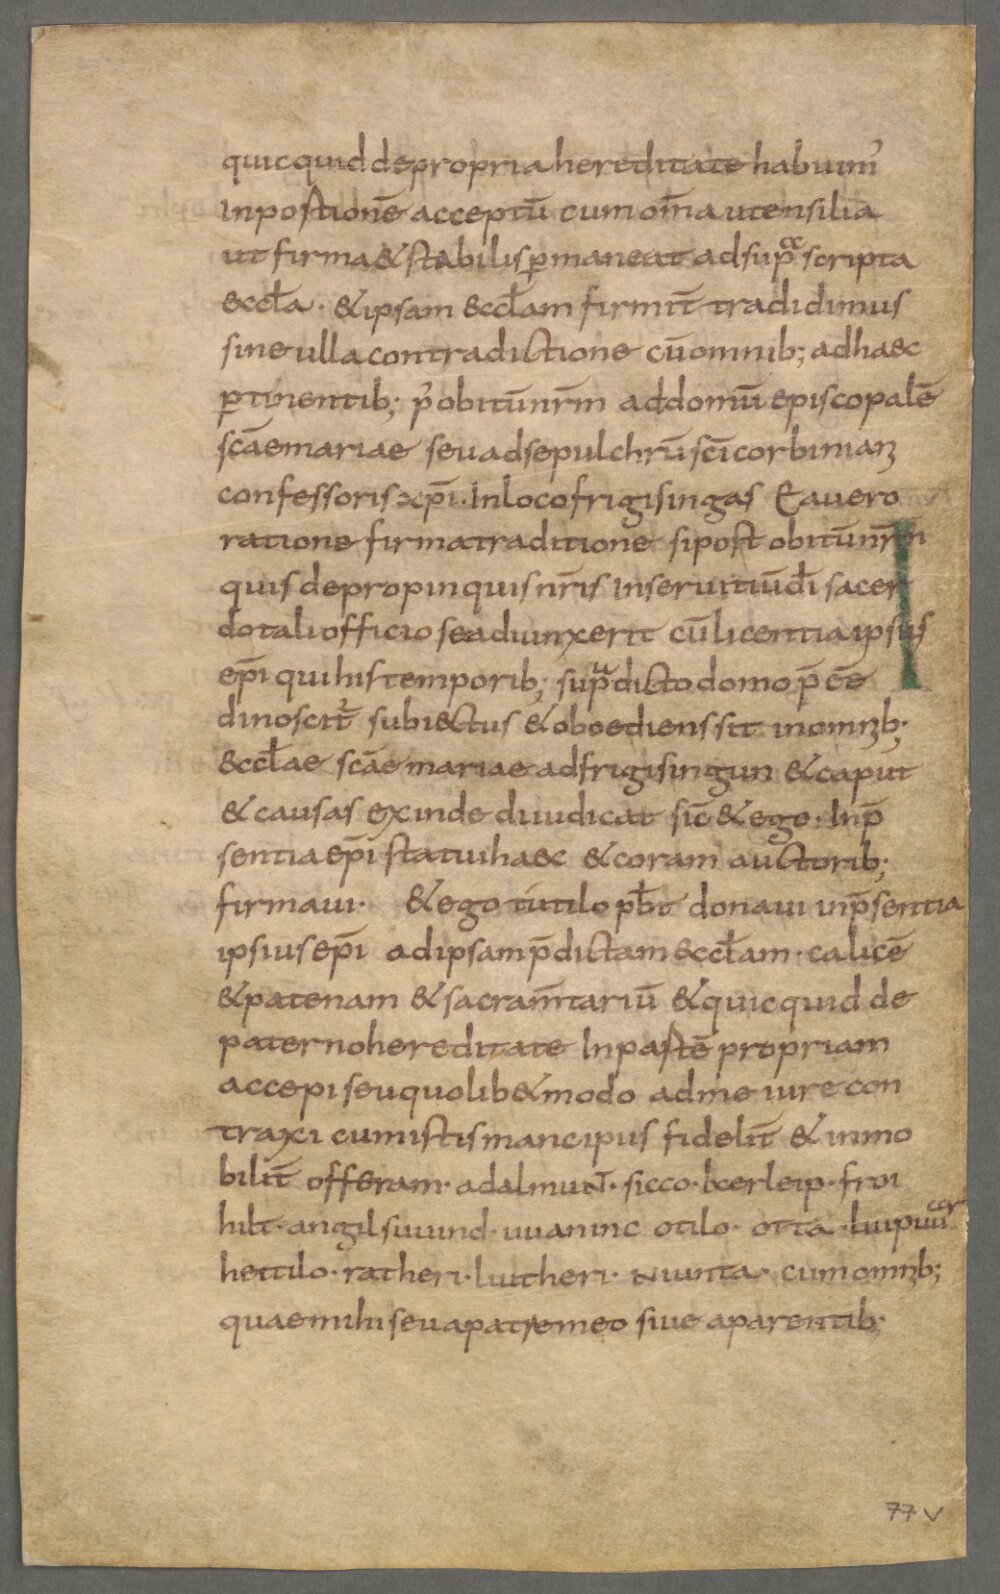 quicquid depropria hereditate habuim᾽
Inpostionē acceptū cum om̄a utensilia
ut firma & stabilis ꝑmaneat ad sup̄ scripta
&ccl̄a · & ipsam &ccl̄am firmit̄ tradidimus
sine ulla contradictione cū omnib; ad haec
ꝑtinentib; p᾽ obitū nr̄m ad domū episcopalē
scāe mariae seu ad sepulchrū scī corbiniani
confessoris xp̄i · In loco frigisingas Ea uero
ratione firma traditione si post obitū nr̄m
quis de propinquis nr̄is In seruitiū dī sacer
dotali officio se adiunxerit cū licentia ipsius
ep̄i qui his temporib; sup̄dicto domo p̄ eē
dinoscit᾽ subiectus & oboediens sit in omnib;
&ccl̄ae scāe mariae ad frigisingun & caput
& causas exinde diiudicat sic̄ & ego · In p̄
sentia ep̄i statui haec & coram auctorib;
firmaui · & ego tutilo pb̄t donaui in p̄sentia
ipsius ep̄i ad ipsam p̄dictam &ccl̄am · calicē
& patenam & sacram̄tariū & quicquid de
paterno hereditate In pastē propriam
accepi seu quolib& modo ad me iure con
traxi cum istis mancipiis fidelit̄ & inmo
bilit̄ offeram · adalmunt · sicco · kerleip · froi
hilt · angilsuuind · uuaninc otilo · otta · liupuuī
hettilo · ratheri · liutheri · Nuunta · cum omnib;
quae mihi seu a patre meo siue a parentib;
77 v